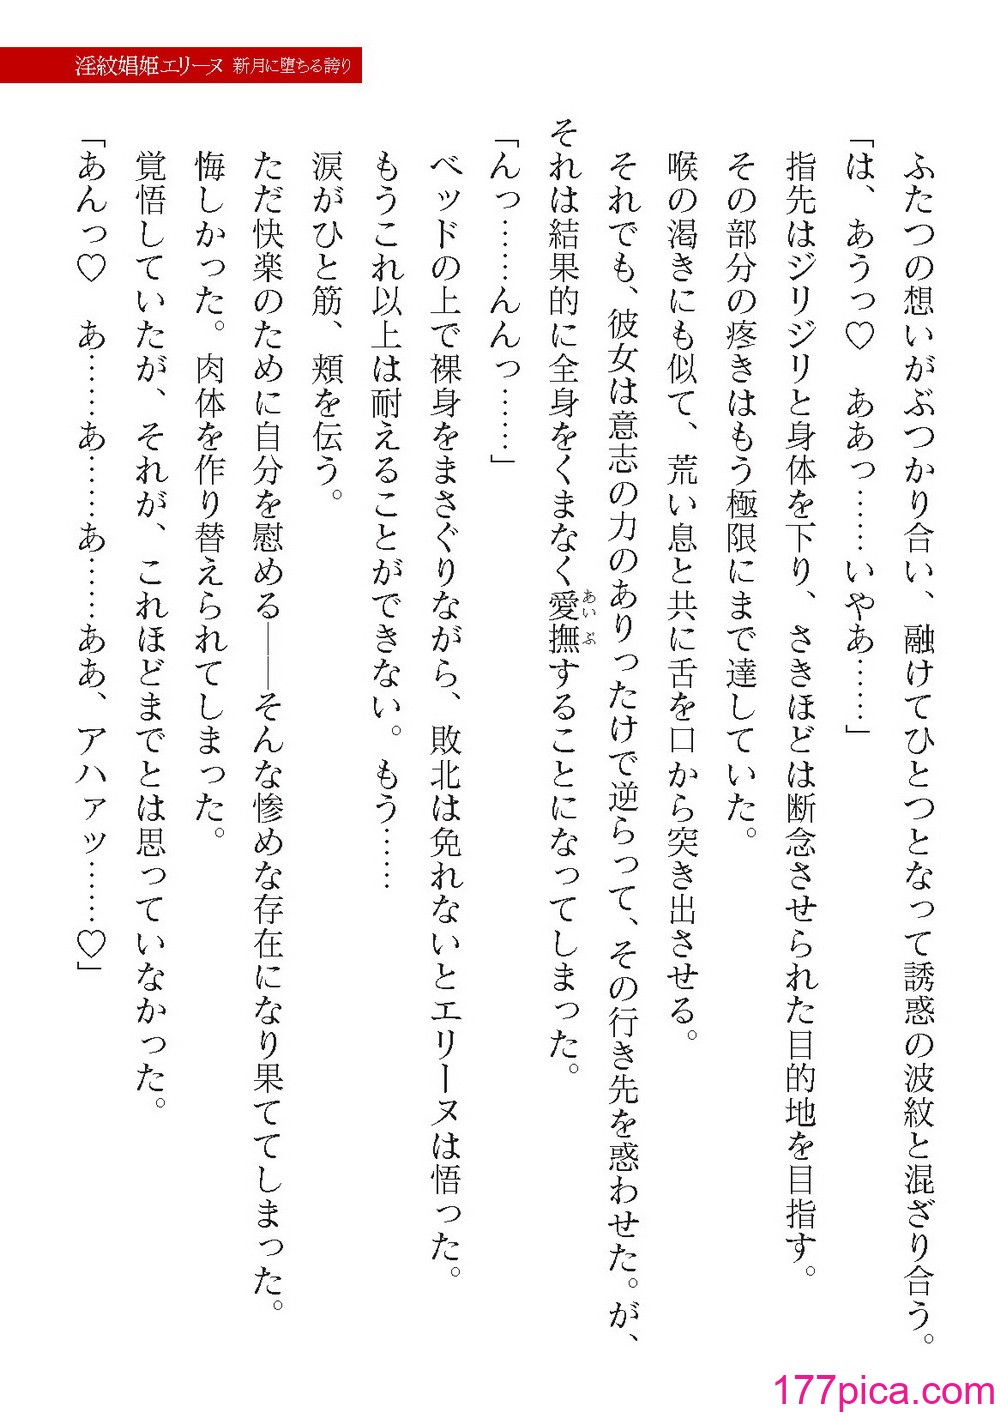 淫紋娼姫エリーヌ 新月に堕ちる誇り
ふたつの想いがぶつかり合い、融けてひとつとなって誘惑の波紋と混ざり合う。
「は、あうっ♡　ああっ……いやあ……」
指先はジリジリと身体を下り、さきほどは断念させられた目的地を目指す。
その部分の疼きはもう極限にまで達していた。
喉の渇きにも似て、荒い息と共に舌を口から突き出させる。
それでも、彼女は意志の力のありったけで逆らって、その行き先を惑わせた。が、
それは結果的に全身をくまなく愛撫することになってしまった。
あいぶ
「んっ……んんっ……」
ベッドの上で裸身をまさぐりながら、敗北は免れないとエリーヌは悟った。
もうこれ以上は耐えることができない。もう……
涙がひと筋、頬を伝う。
ただ快楽のために自分を慰める――そんな惨めな存在になり果ててしまった。
悔しかった。肉体を作り替えられてしまった。
覚悟していたが、それが、これほどまでとは思っていなかった。
「あんっ♡　あ……あ……あ……ああ、アハァッ……♡」
177pica.com